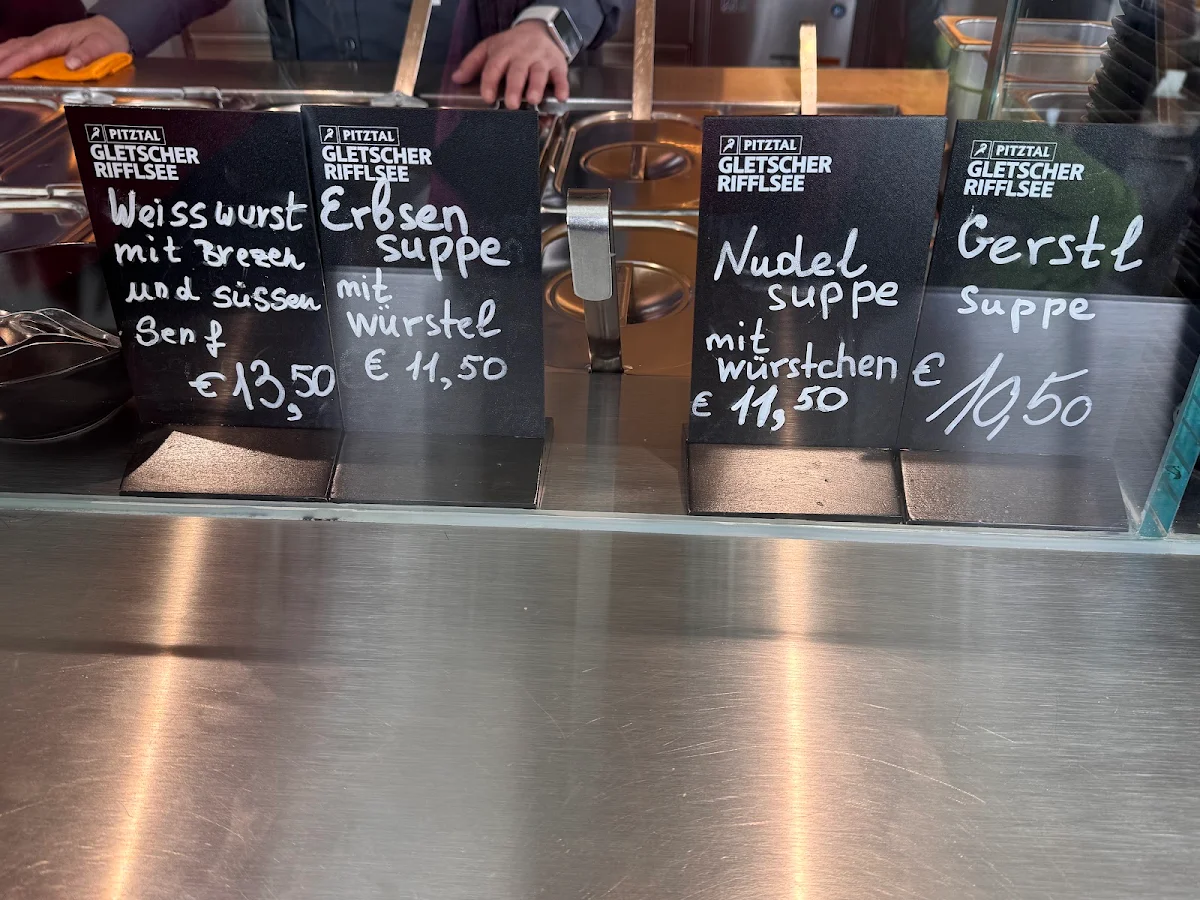 PITZTAL
GLETSCHER
RIFFLSEE
Weisswurst
mit Brezen
und süssen
Senf
€ 13,50
PITZTAL
GLETSCHER
RIFFLSEE
Erbsen
suppe
mit
würstel
€ 11,50
PITZTAL
GLETSCHER
RIFFLSEE
Nudel
suppe
mit
würstchen
€ 11,50
PITZTAL
GLETSCHER
RIFFLSEE
Gerstl
suppe
€ 10,50